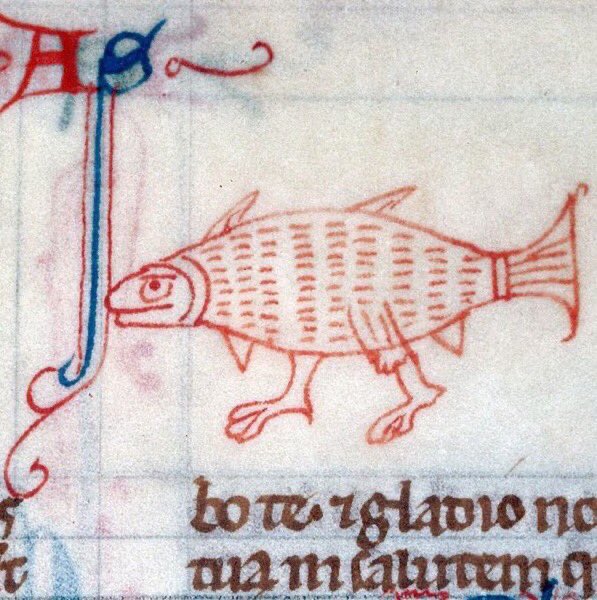 AS
bo te· ⁊ gladio no
tuam ſalutem q